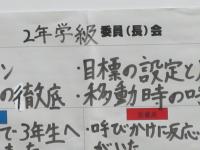 2年学級 委員(長)会
ン ・目標の設定と
の徹底 ・移動時の呼
で3年生へ ・呼びかけに反応